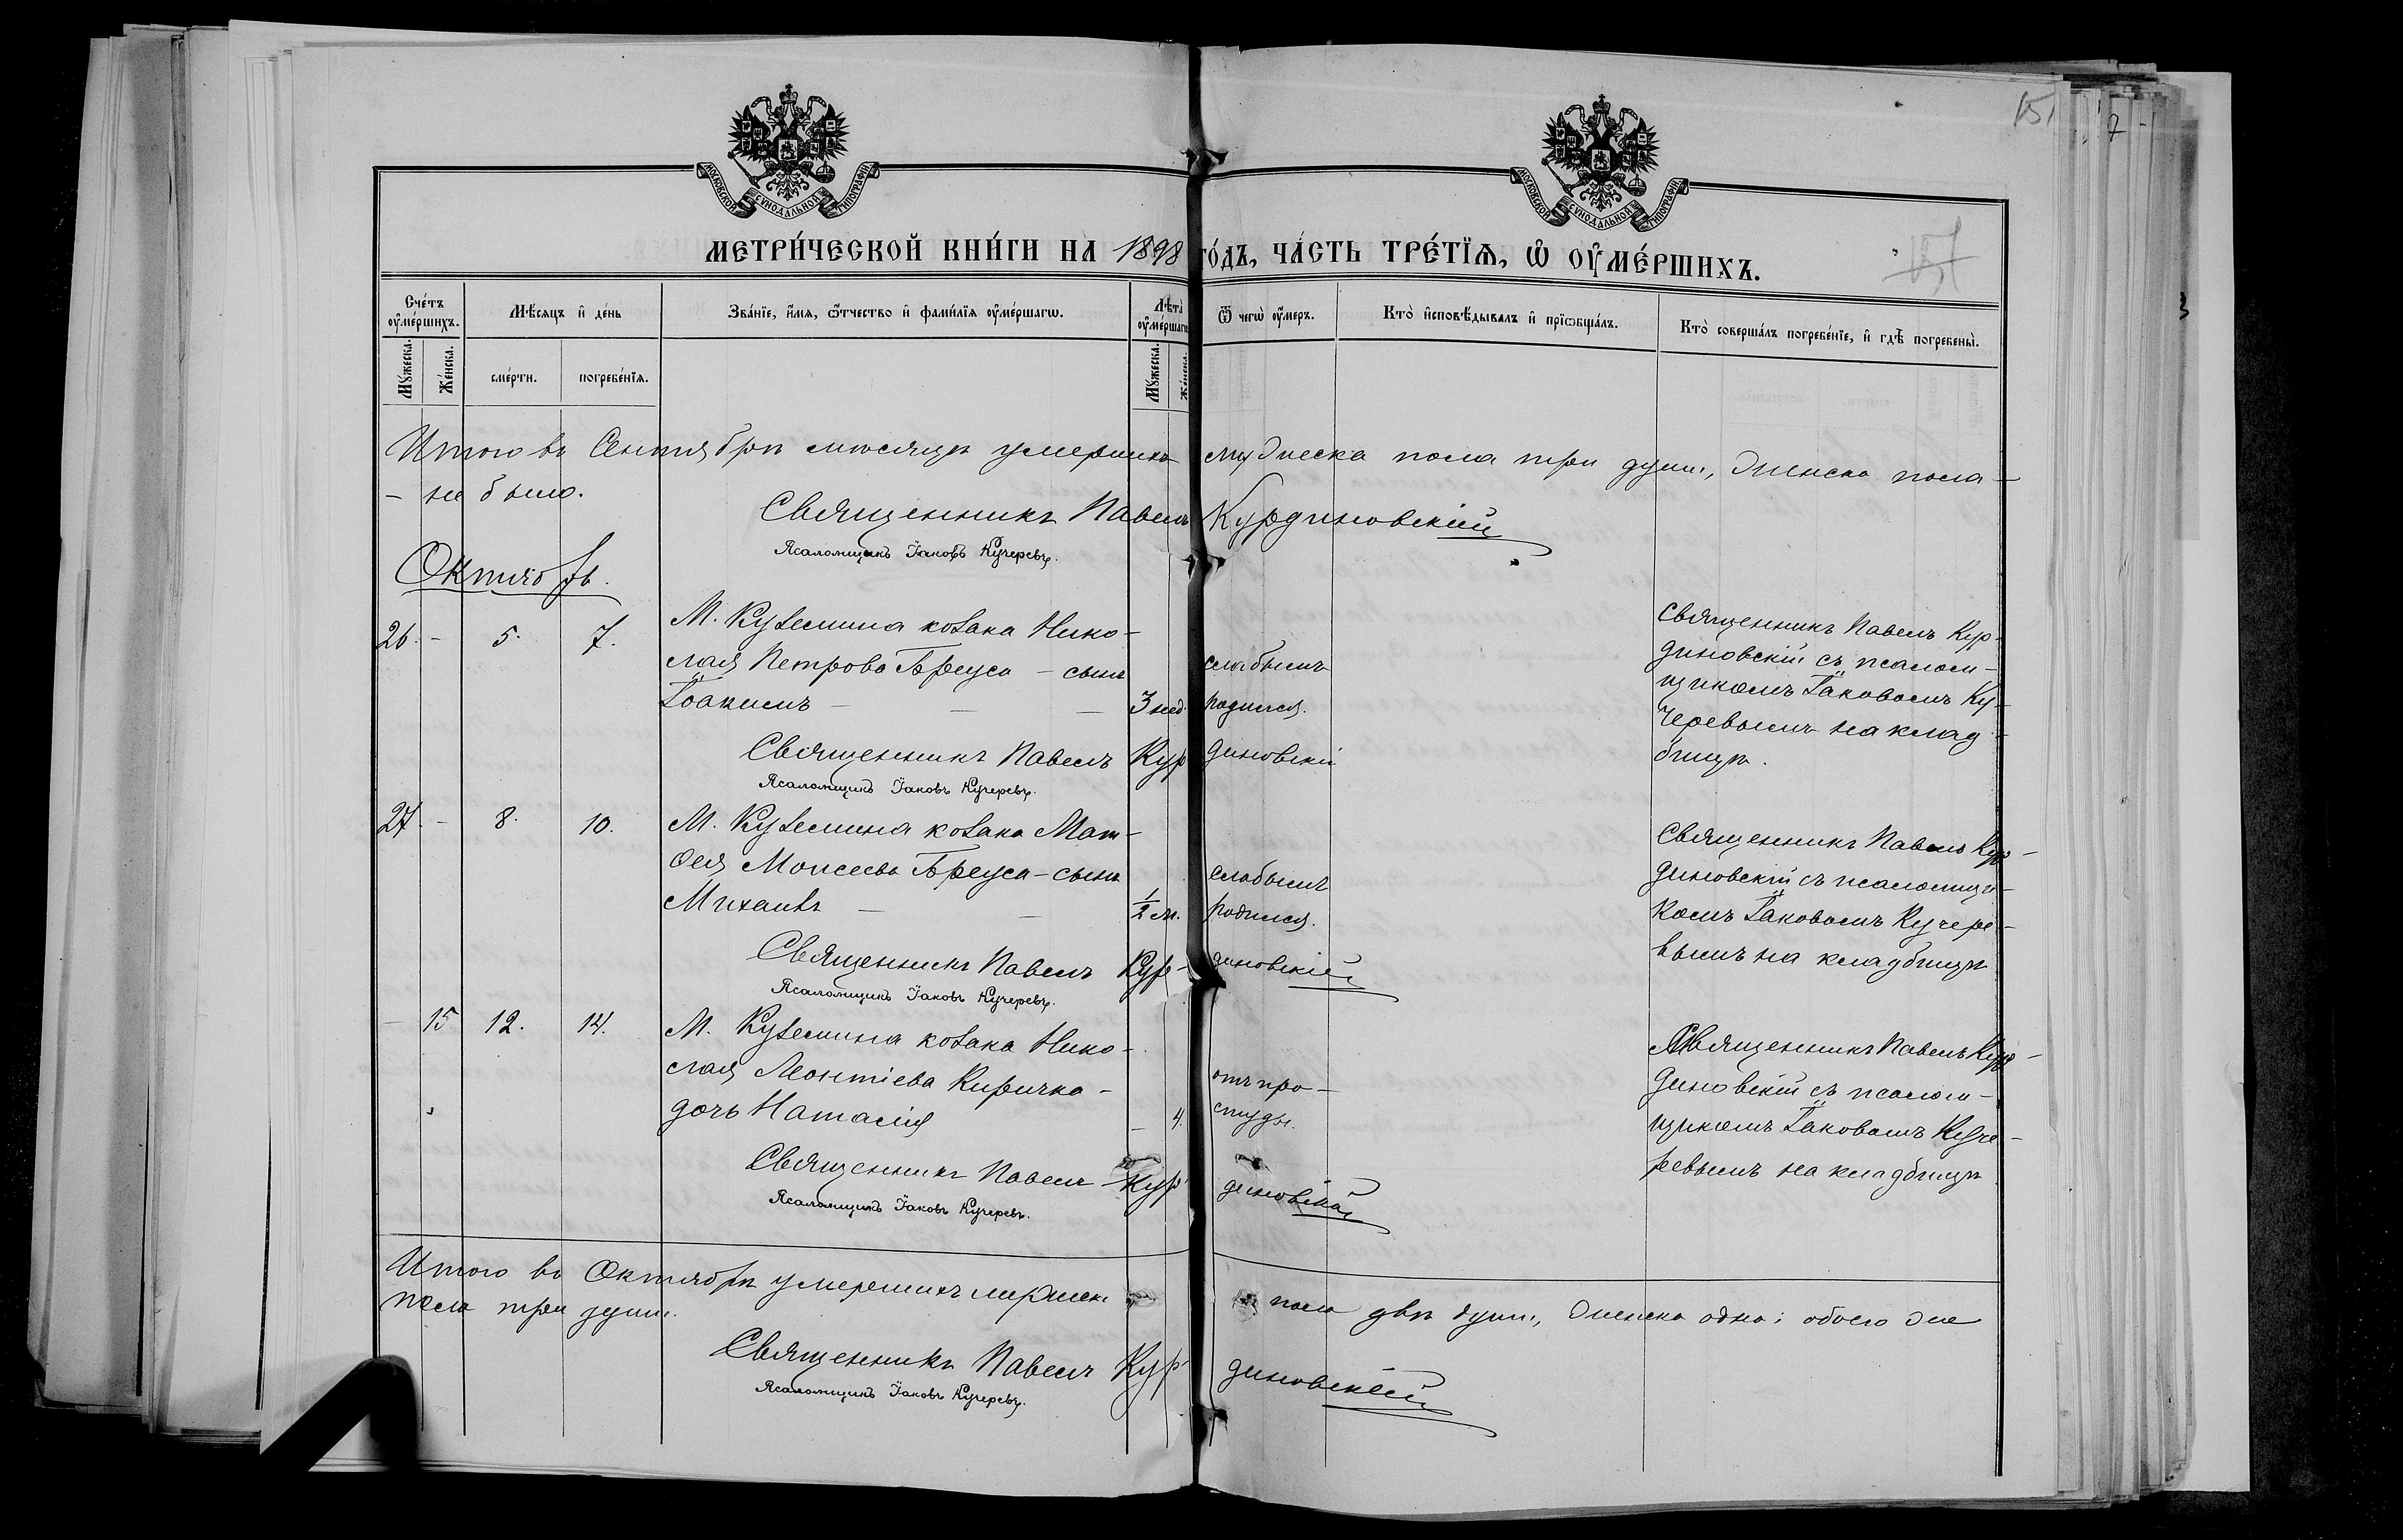 151
7
МОСКОВСКОЙ СѴНОДАЛЬНОЙ ТИПОГРАФІИ
МОСКОВСКОЙ СѴНОДАЛЬНОЙ ТИПОГРАФІИ
МЕТРИ́ЧЕСКОЙ КНИ́ГИ НА 1898 ГО́ДЪ, ЧА́СТЬ ТРЕ́ТЇѦ, Ѡ҆ ОУ҆МЕ́РШИХЪ.
Сче́тъ оу҆ме́ршихъ.
Мꙋ́жеска.
Же́нска.
Мѣ́сѧцъ и҆ де́нь
сме́рти.
погребе́нїѧ.
Зва́нїе, и҆́мѧ, ѻ҆́тчество и҆ фами́лїѧ оу҆ме́ршагѡ.
Лѣ́та̀ оу҆ме́ршагѡ
Мꙋ́жеска.
Же́нска.
Ѿ чегѡ̀ оу҆́меръ.
Кто̀ и҆сповѣ́дывалъ и҆ прїѡбща́лъ.
Кто̀ соверша́лъ погребе́нїе, и҆ гдѣ̀ погребены̀.
Итого въ Сентябрѣ мѣсяцѣ умершихъ мужеска пола три души, женска пола —
— не было.
Священникъ Павелъ Курдиновскій
Псаломщикъ Іаковъ Кучеревъ.
Октябрь.
26. — 5. 7. М. Куземина козака Нико-
лая Петрова Бреуса — сынъ
Іоакимъ — — — 3 нед.
слабымъ
родился.
Священникъ Павелъ Кур-
диновскій съ псалом-
щикомъ Іаковомъ Ку-
черевымъ на клад-
бищѣ.
Священникъ Павелъ Курдиновскій
Псаломщикъ Іаковъ Кучеревъ.
27. — 8. 10. М. Куземина козака Мат-
ѳея Моисеева Бреуса — сынъ
Михаилъ — — 1/2 м.
слабымъ
родился.
Священникъ Павелъ Кур-
диновскій съ псаломщи-
комъ Іаковомъ Кучере-
вымъ на кладбищѣ
Священникъ Павелъ Кур-диновскій
Псаломщикъ Іаковъ Кучеревъ.
— 15 12. 14. М. Куземина козака Нико-
лая Леонтіева Киричка —
дочь Наталія — 4.
отъ про-
студы.
Священникъ Павелъ Кур-
диновскій съ псалом-
щикомъ Іаковомъ Куче-
ревымъ на кладбищѣ
Священникъ Павелъ Курдиновскій
Псаломщикъ Іаковъ Кучеревъ.
Итого въ Октябрѣ умершихъ мужеск. пола двѣ души, женска одна; обоего же
пола три души.
Священникъ Павелъ Курдиновскій
Псаломщикъ Іаковъ Кучеревъ.